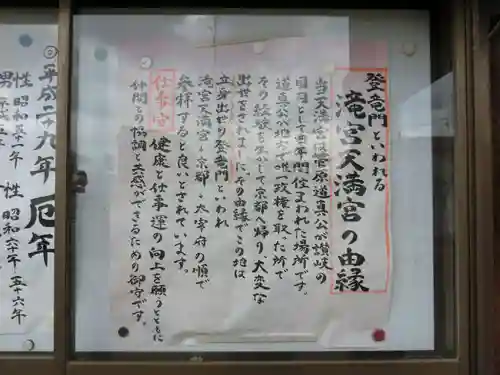 登竜門といわれる
滝宮天満宮の由縁
当天満宮は菅原道真公が讃岐の
国司として四年間住まわれた場所です。
道真公が地方で唯一政権を取った所で
その経験を生かして京都へ帰り大変な
出世をされました。その由縁でこの地は
立身出世の登竜門といわれ
滝宮天満宮・京都・太宰府の順で
参拝すると良いとされています。
仕事守
健康と仕事運の向上を願うとともに
仲間との協調と共感ができるための御守です。
◎平成二十九年 厄年
性 昭和五十一年
性 昭和六十年 五十六年
男